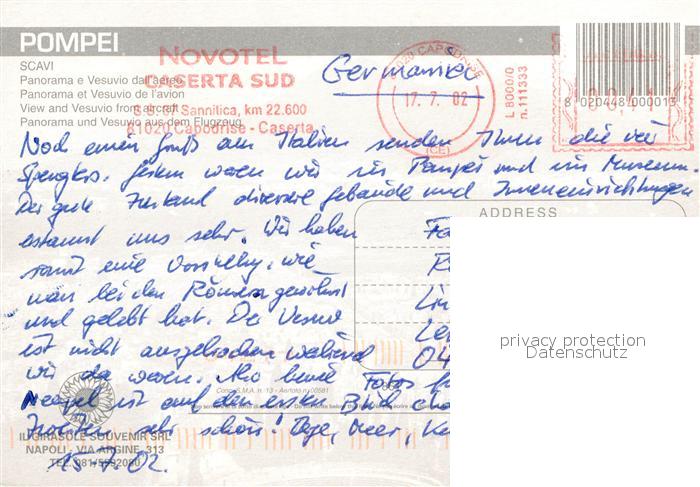 POMPEI
SCAVI
Panorama e Vesuvio dall'aereo
Panorama et Vesuve de l'avion
View and Vesuvio from aircraft
Panorama und Vesuvio aus dem Flugzeug
NOVOTEL
CASERTA SUD
S.S. 87 Sannitica, km 22.600
81020 Capodrise - Caserta
Germania
81020 CAPODRISE
17. 7. 02
(CE)
L 8000/0
n. 111333
8 020448 000013
Noch einen Gruß aus Italien senden Ihnen die vier
Spenglers. Gestern waren wir in Pompei und im Museum.
Der gute Zustand Gebäude und Inneneinrichtungen
erstaunt uns sehr. Wir haben
somit eine Vorstellung, wie
man bei den Römern gewohnt
und gelebt hat. Der Vesuv
ist nicht ausgebrochen während
wir da waren.
Neapel ist auf den ersten Blick
sehr schön! Berge, Meer,
15.7.02.
ADDRESS
Fotos
04
privacy protection
Datenschutz
IL GIRASOLE SOUVENIR SRL
NAPOLI - VIA ARGINE, 313
TEL. 081/5592080